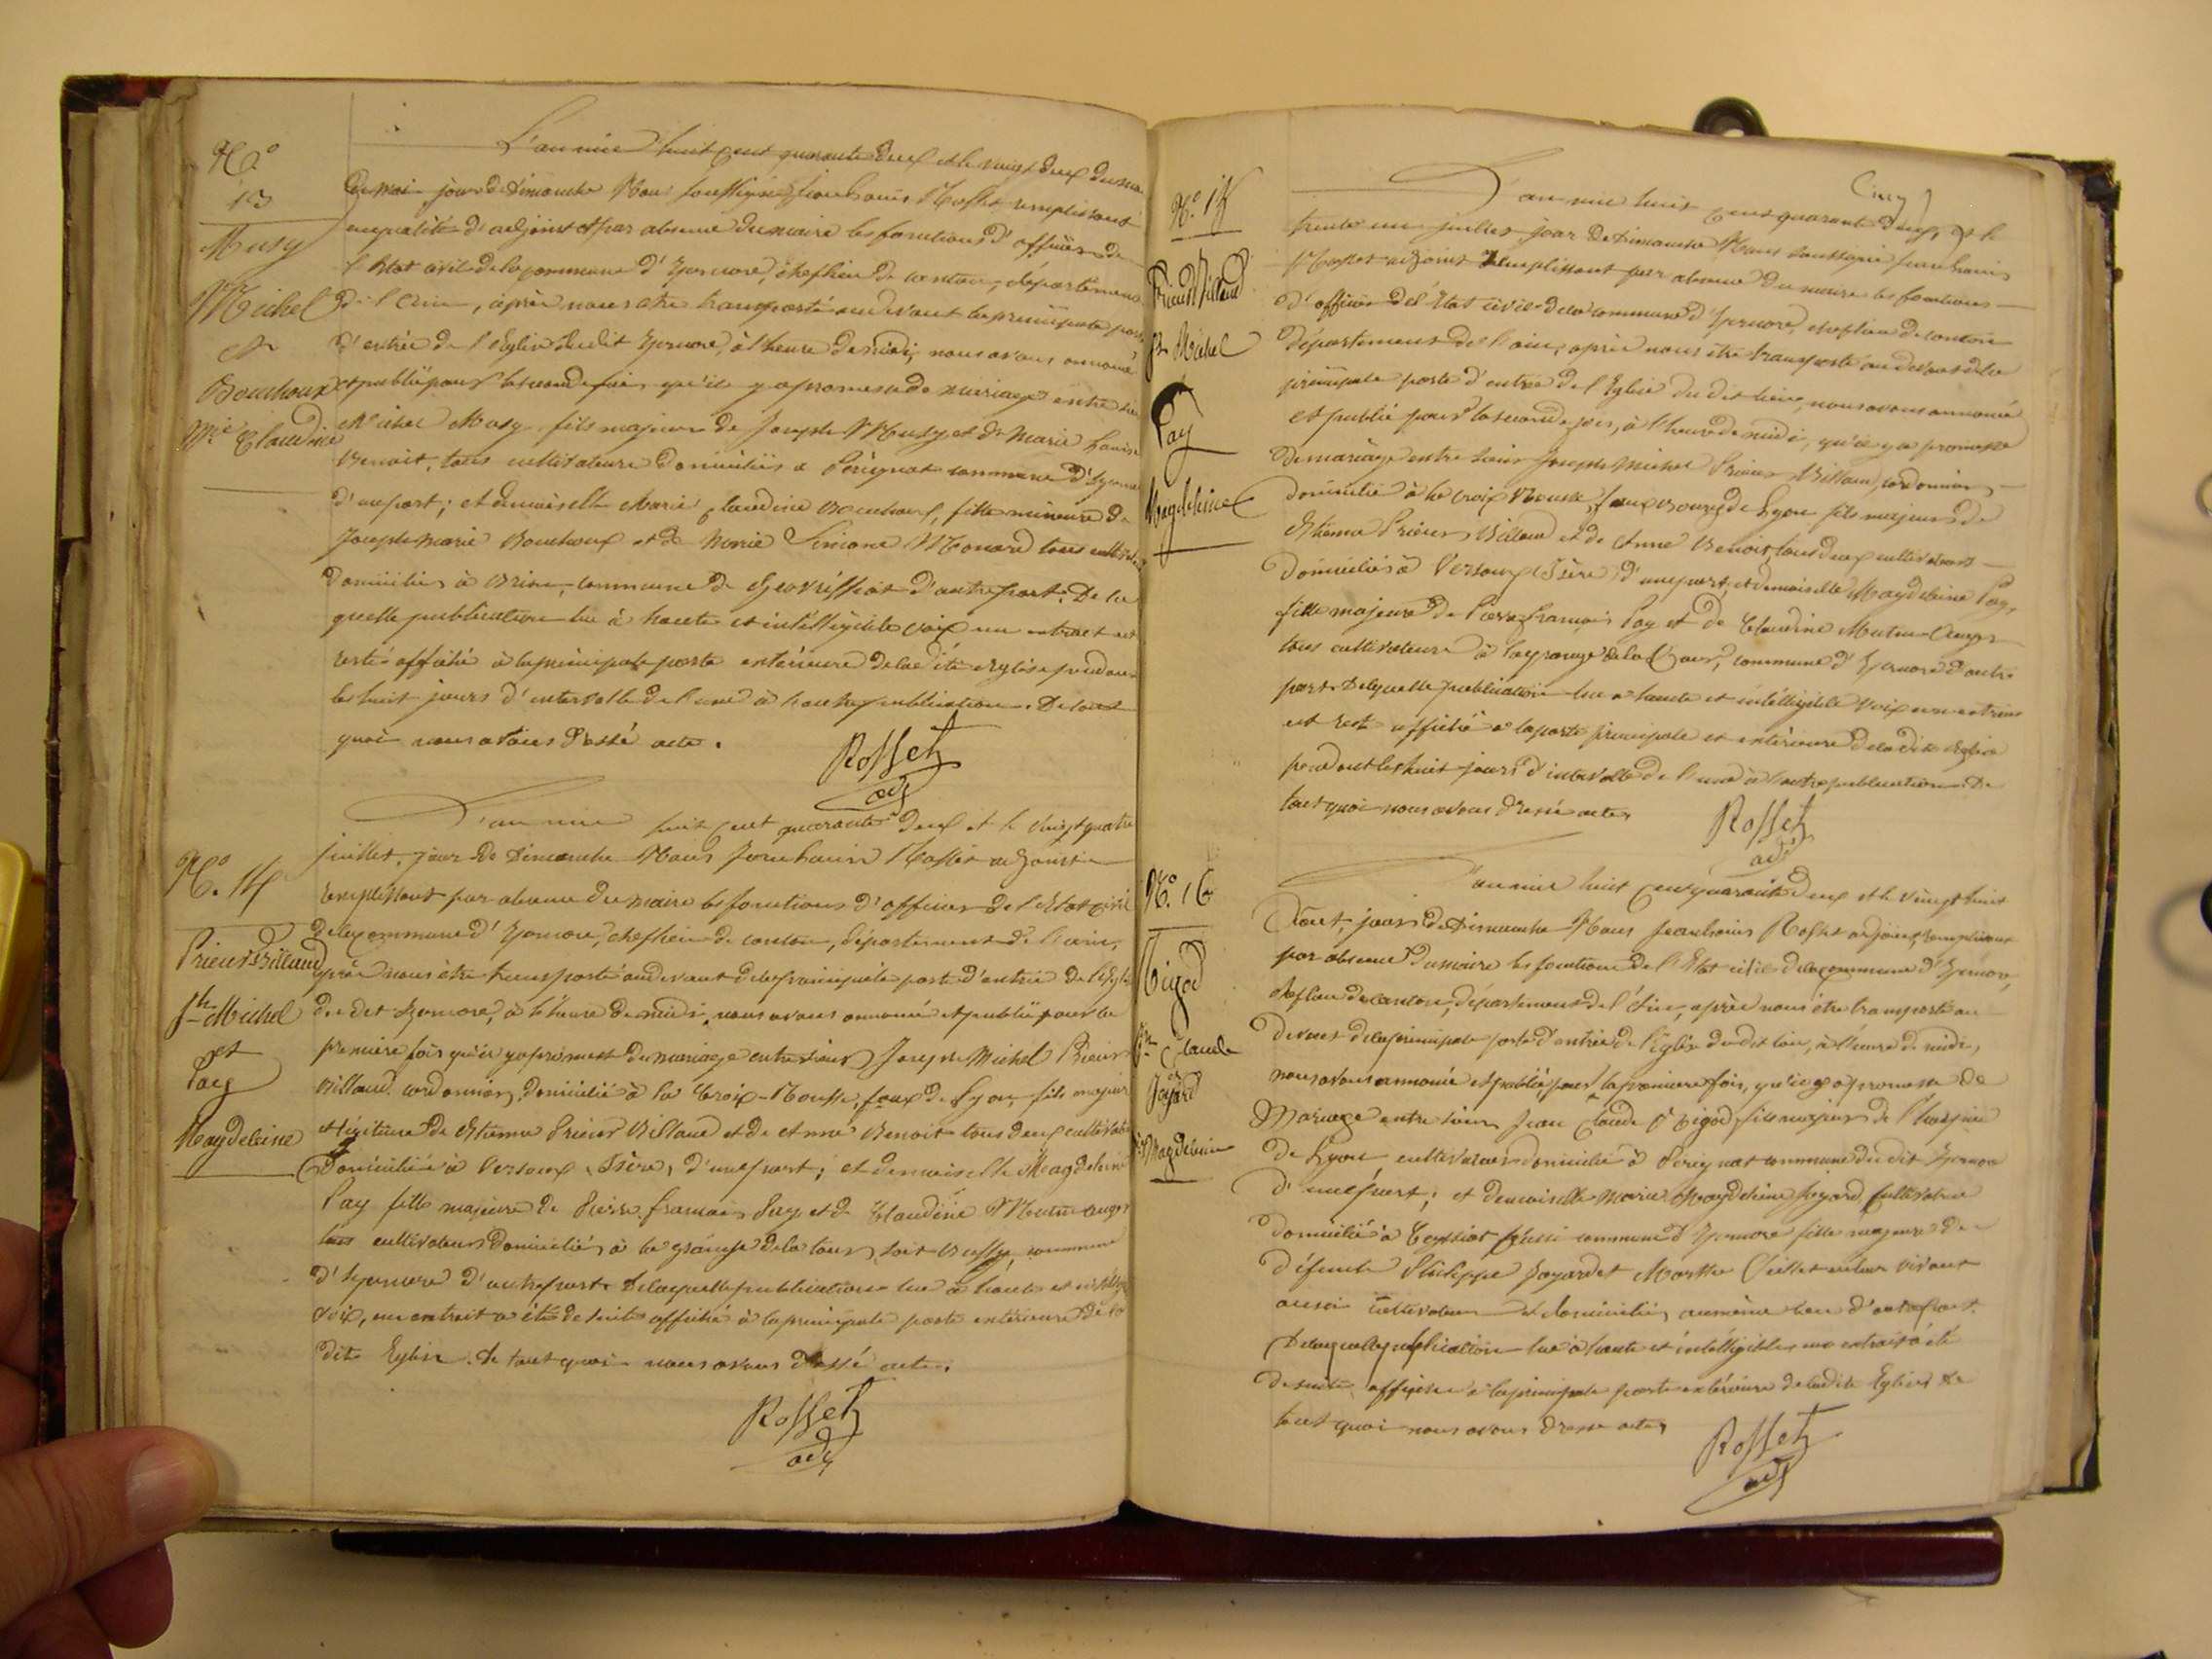 N.o
13
Musy
Michel
et
Bouchoux
Mie Claudine
L'an mil huit cent quarante deux et le vingt deux du mois
de mai jour de Dimanche Nous soussigné Jean Louis Rosset remplissant
en qualité d'adjoint et par absence du maire les fonctions d'officier de
l'Etat civil de la commune d'Izernore, cheflieu de canton, département
de l'Ain, après nous être transporté au devant la principale porte
d'entrée de l'Eglise du dit Izernore, à l'heure de midi, nous avons annoncé
et publié pour la seconde fois qu'il y a promesse de mariage entre sieur
Michel Musy fils majeur de Joseph Musy et de Marie Louise
Benoit, tous cultivateurs domiciliés à Perignat commune d'Izernore
d'une part; et demoiselle Marie Claudine Bouchoux, fille mineure de
Joseph Marie Bouchoux et de Marie Simone Monard tous cultivateurs
domiciliés à Brion, commune de Geovreissiat d'autre part. De la
quelle publication lue à haute et intelligible voix un extrait est
resté affiché à la principale porte extérieure de la dite Eglise pendant
les huit jours d'intervalle de l'une à l'autre publication. De tout
quoi nous avons dressé acte.
Rosset
adj
N.o 14
Prieur Billaud
Jh Michel
et
Pay
Magdeleine
L'an mil huit cent quarante deux et le vingt quatre
juillet, jour de Dimanche Nous Jean Louis Rosset adjoint
remplissant par absence du maire les fonctions d'officier de l'Etat civil
de la commune d'Izernore, cheflieu de canton, département de l'Ain,
après nous être transporté au devant de la principale porte d'entrée de l'Eglise
du dit Izernore, à l'heure de midi, nous avons annoncé et publié pour la
première fois qu'il y a promesse de mariage entre sieur Joseph Michel Prieur
Billaud cordonnier, domicilié à la Croix-Rousse, faux de Lyon, fils majeur
et légitime de Etienne Prieur Billaud et de Anne Benoit tous deux cultivateurs
domiciliés à Versoux (Isère) d'une part; et demoiselle Magdeleine
Pay fille majeure de Pierre François Pay et de Claudine
cultivateurs domiciliés à la grange de la tour, soit Bussy, commune
d'Izernore d'autre part. De laquelle publication lue à haute et intelligible
voix, un extrait a été de suite affiché à la principale porte extérieure de la
dite Eglise. De tout quoi nous avons dressé acte.
Rosset
adj
Cinq
N.o 15
Prieur Billaud
Jh Michel
Pay
Magdeleine
L'an mil huit cent quarante deux, et le
trente un juillet jour de Dimanche Nous soussigné Jean Louis
Rosset adjoint remplissant par absence du maire les fonctions
d'officier de l'Etat civil de la commune d'Izernore, cheflieu de canton
département de l'Ain, après nous être transporté au devant de la
principale porte d'entrée de l'Eglise du dit lieu, nous avons annoncé
et publié pour la seconde fois, à l'heure de midi, qu'il y a promesse
de mariage entre sieur Joseph Michel Prieur Billaud, cordonnier,
domicilié à la croix Rousse, fauxbourg de Lyon fils majeur de
Etienne Prieur Billaud et de Anne Benoit, tous deux cultivateurs
domiciliés à Versoux (Isère) d'une part, et demoiselle Magdeleine Pay,
fille majeure de Pierre François Pay et de Claudine
tous cultivateurs à la grange de la Tour, commune d'Izernore d'autre
part. De laquelle publication lue à haute et intelligible voix un extrait
est resté affiché à la porte principale et extérieure de la dite Eglise
pendant les huit jours d'intervalle de l'une à l'autre publication. De
tout quoi nous avons dressé acte.
Rosset
adj
N.o 16
Rigod
Jn Claude
et
Joyard
Mie Magdeleine
L'an mil huit cent quarante deux et le vingt huit
Août, jour de Dimanche Nous Jean Louis Rosset adjoint, remplissant
par absence du maire les fonctions de l'Etat civil de la commune d'Izernore,
cheflieu de canton, département de l'Ain, après nous être transporté au
devant de la principale porte d'entrée de l'Eglise du dit lieu, à l'heure de midi,
nous avons annoncé et publié, pour la première fois, qu'il y a promesse de
Mariage entre sieur Jean Claude Rigod, fils majeur de l'hospice
de Lyon, cultivateur domicilié à Perignat commune du dit Izernore
d'une part; et demoiselle Marie Magdeleine Joyard, cultivatrice
domiciliée à Ceyssiat aussi commune d'Izernore fille majeure de
défunt Philippe Joyard et Marthe vivant
aussi cultivateur et domiciliés au même lieu d'autre part.
De laquelle publication lue à haute et intelligible un extrait a été
de suite affiché à la principale porte extérieure de la dite Eglise De
tout quoi nous avons dressé acte.
Rosset
adj